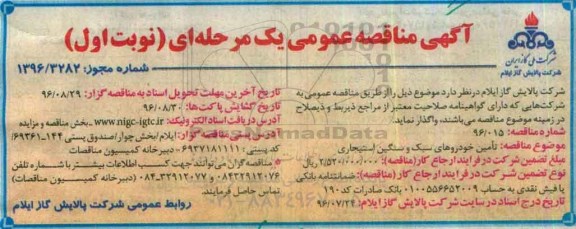 آگهی مناقصه عمومی یک مرحله‌ای (نوبت اول)
شرکت ملی گاز ایران
شرکت پالایش گاز ایلام
شماره مجوز: ۱۳۹۶/۳۲۸۲
شرکت پالایش گاز ایلام در نظر دارد موضوع ذیل را از طریق مناقصه عمومی به
شرکت‌هایی که دارای گواهینامه صلاحیت معتبر از مراجع ذیربط و ذیصلاح
در زمینه موضوع مناقصه می‌باشند، واگذار نماید.
شماره مناقصه: ۹۶/۰۱۵
موضوع مناقصه: تأمین خودروهای سبک و سنگین استیجاری
مبلغ تضمین شرکت در فرایند ارجاع کار (مناقصه): ۲/۵۲۰/۰۰۰/۰۰۰ ریال
نوع تضمین شرکت در فرایند ارجاع کار (مناقصه): ضمانتنامه بانکی
یا فیش نقدی به حساب ۰۱۰۰۵۵۶۶۵۲۰۰۹ بانک صادرات کد ۱۹۰
تاریخ درج اسناد در سایت شرکت پالایش گاز ایلام: ۹۶/۰۷/۲۴
تاریخ آخرین مهلت تحویل اسناد به مناقصه گزار: ۹۶/۰۸/۲۹
تاریخ گشایش پاکت‌ها: ۹۶/۰۸/۳۰
آدرس دریافت اسناد الکترونیک: www.nigc-igtc.ir، بخش مناقصه و مزایده
آدرس مناقصه گزار: ایلام/بخش چوار/صندوق پستی ۱۴۴-۶۹۳۶۱/
کد پستی: ۶۹۳۷۱۸۱۱۱۱ (دبیرخانه کمیسیون مناقصات)
مناقصه گران می‌توانند جهت کسب اطلاعات بیشتر با شماره تلفن
۰۸۴۳۲۹۱۲۰۷۶ و ۰۸۴-۳۲۹۱۲۰۷۷ (دبیرخانه کمیسیون مناقصات)
تماس حاصل فرمایند.
روابط عمومی شرکت پالایش گاز ایلام